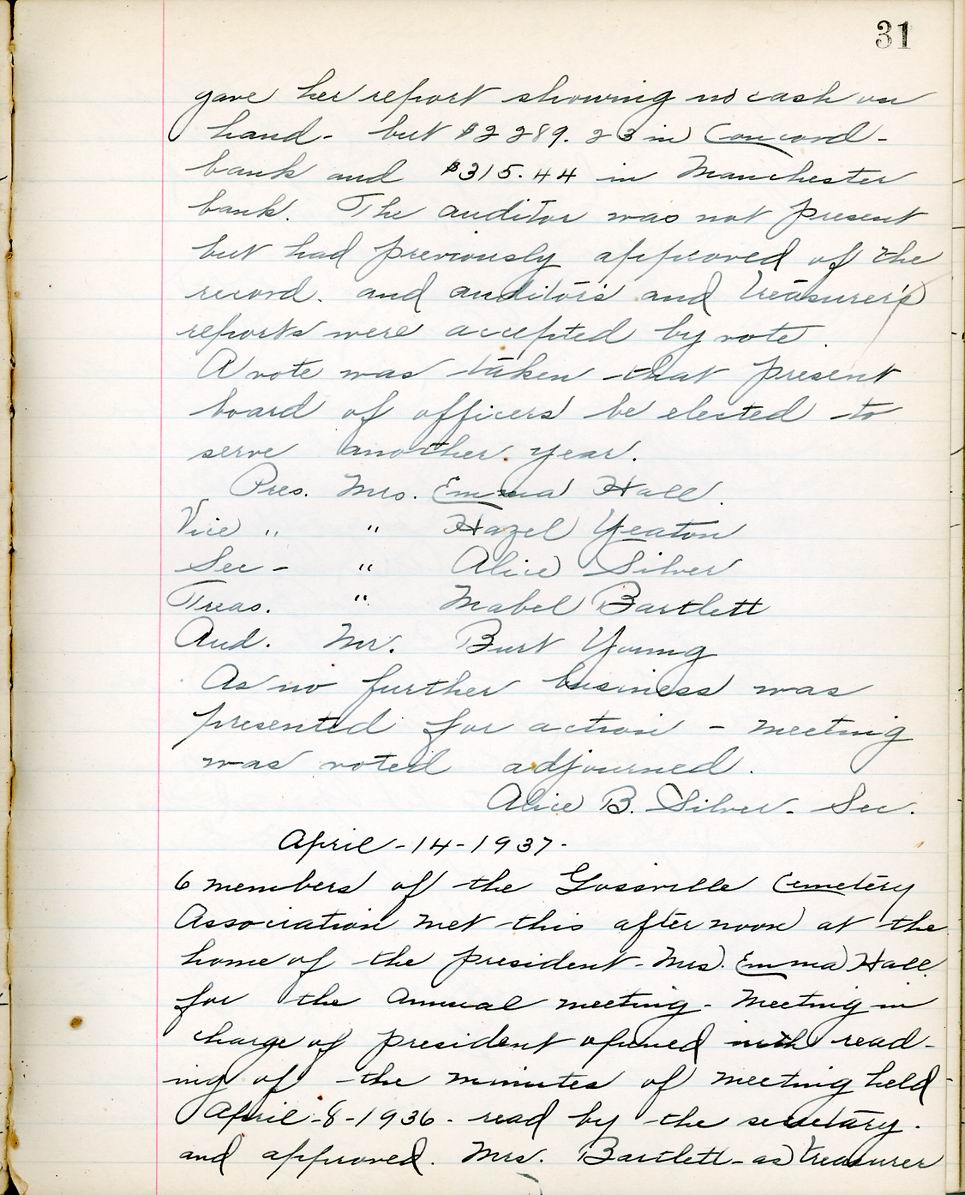 31
gave her report showing no cash on
hand - but $2289.23 in Concord -
bank and $315.44 in Manchester
bank. The auditor was not present
but had previously approved of the
record. and auditor's and Treasurer's
reports were accepted by vote.
A vote was taken that present
board of officers be elected to
serve another year.
Pres. Mrs. Emma Hall.
Vice " " Hazel Yeaton
Sec - " Alice Silver
Treas. " Mabel Bartlett
Aud. Mr. Burt Young
As no further business was
presented for action - meeting
was voted adjourned.
Alice B. Silver - Sec.
April - 14 - 1937 -
6 members of the Gossville Cemetery
Association met this afternoon at the
home of the president - Mrs. Emma Hall.
for the annual meeting - Meeting in
charge of president opened with read-
ing of the minutes of meeting held
April - 8 - 1936 - read by the secretary.
and approved. Mrs. Bartlett - as treasurer